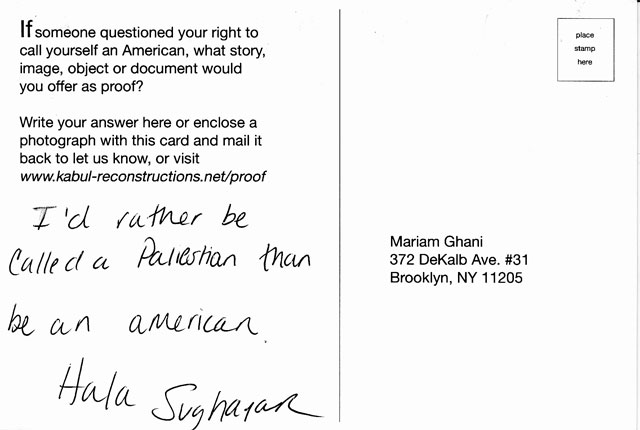 If someone questioned your right to
call yourself an American, what story,
image, object or document would
you offer as proof?
Write your answer here or enclose a
photograph with this card and mail it
back to let us know, or visit
www.kabul-reconstructions.net/proof
I'd rather be
Called a Palestian than
be an american.
Hala
place
stamp
here
Mariam Ghani
372 DeKalb Ave. #31
Brooklyn, NY 11205